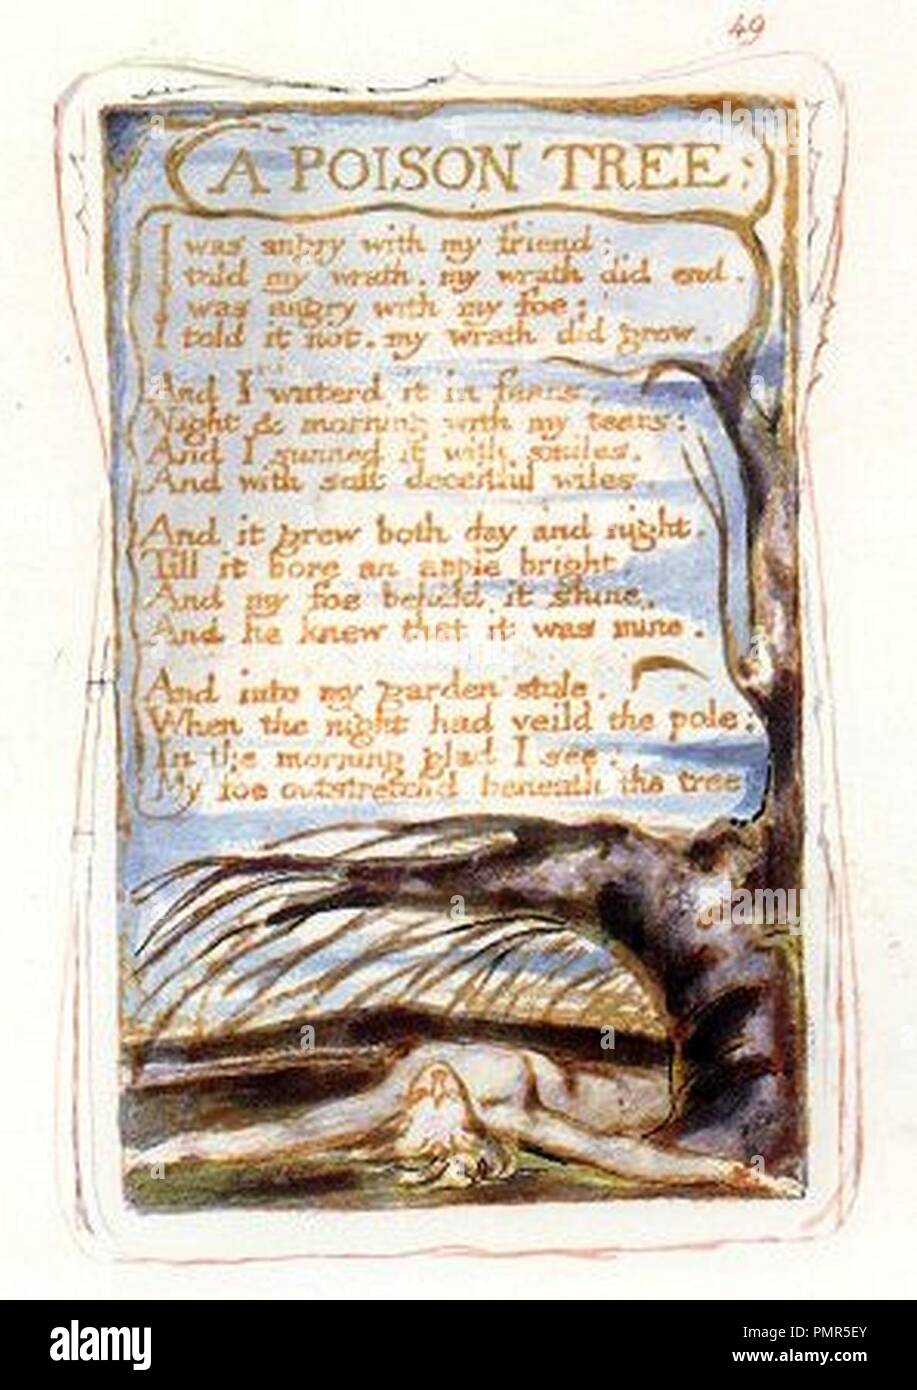 49
A POISON TREE:
I was angry with my friend:
I told my wrath, my wrath did end.
I was angry with my foe:
I told it not, my wrath did grow.
And I waterd it in fears,
Night & morning with my tears:
And I sunned it with smiles,
And with soft deceitful wiles.
And it grew both day and night,
Till it bore an apple bright.
And my foe beheld it shine,
And he knew that it was mine.
And into my garden stole,
When the night had veild the pole;
In the morning glad I see;
My foe outstretchd beneath the tree
alamy
alamy
a
a
a
a
alamy
Image ID: PMR5EY
www.alamy.com